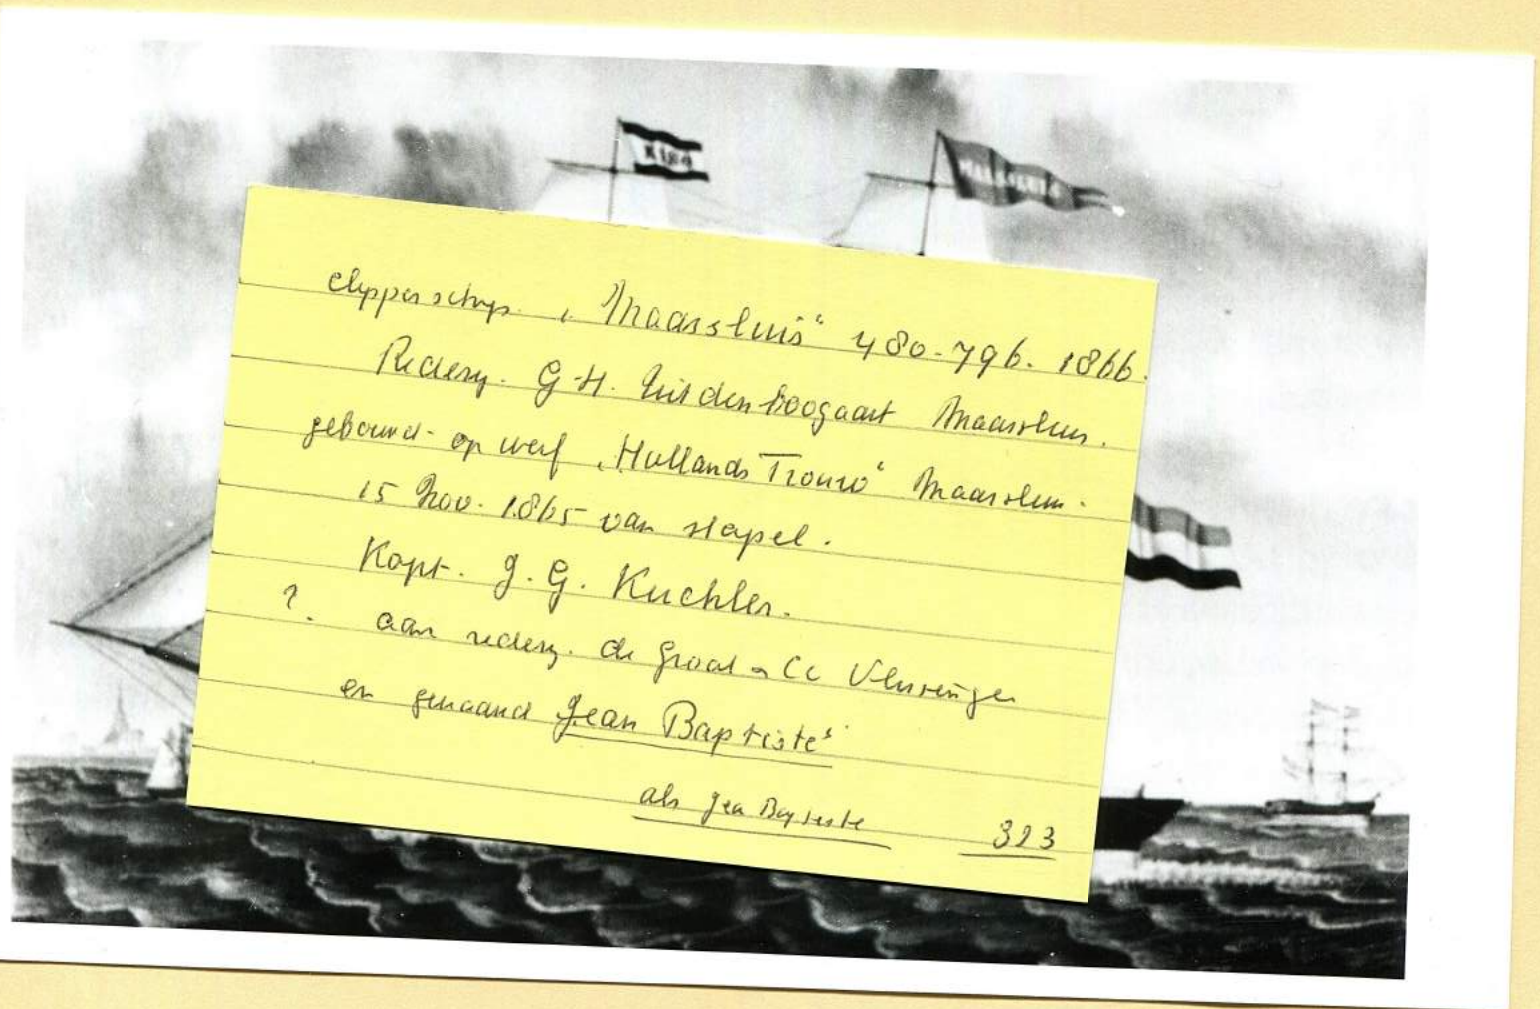 MAASSLUIS
Clipperschip. „Maassluis“ 480-796. 1866.
Redery. G.H. Uit den boogaart Maassluis.
gebouwd op werf „Hollands Trouw“ Maassluis.
15 Nov. 1865 van stapel.
Kapt. J. G. Kuchler.
?. aan redery. de Groot Vlissingen
en genaamd Jean Baptiste"
als Jea Baptiste 323